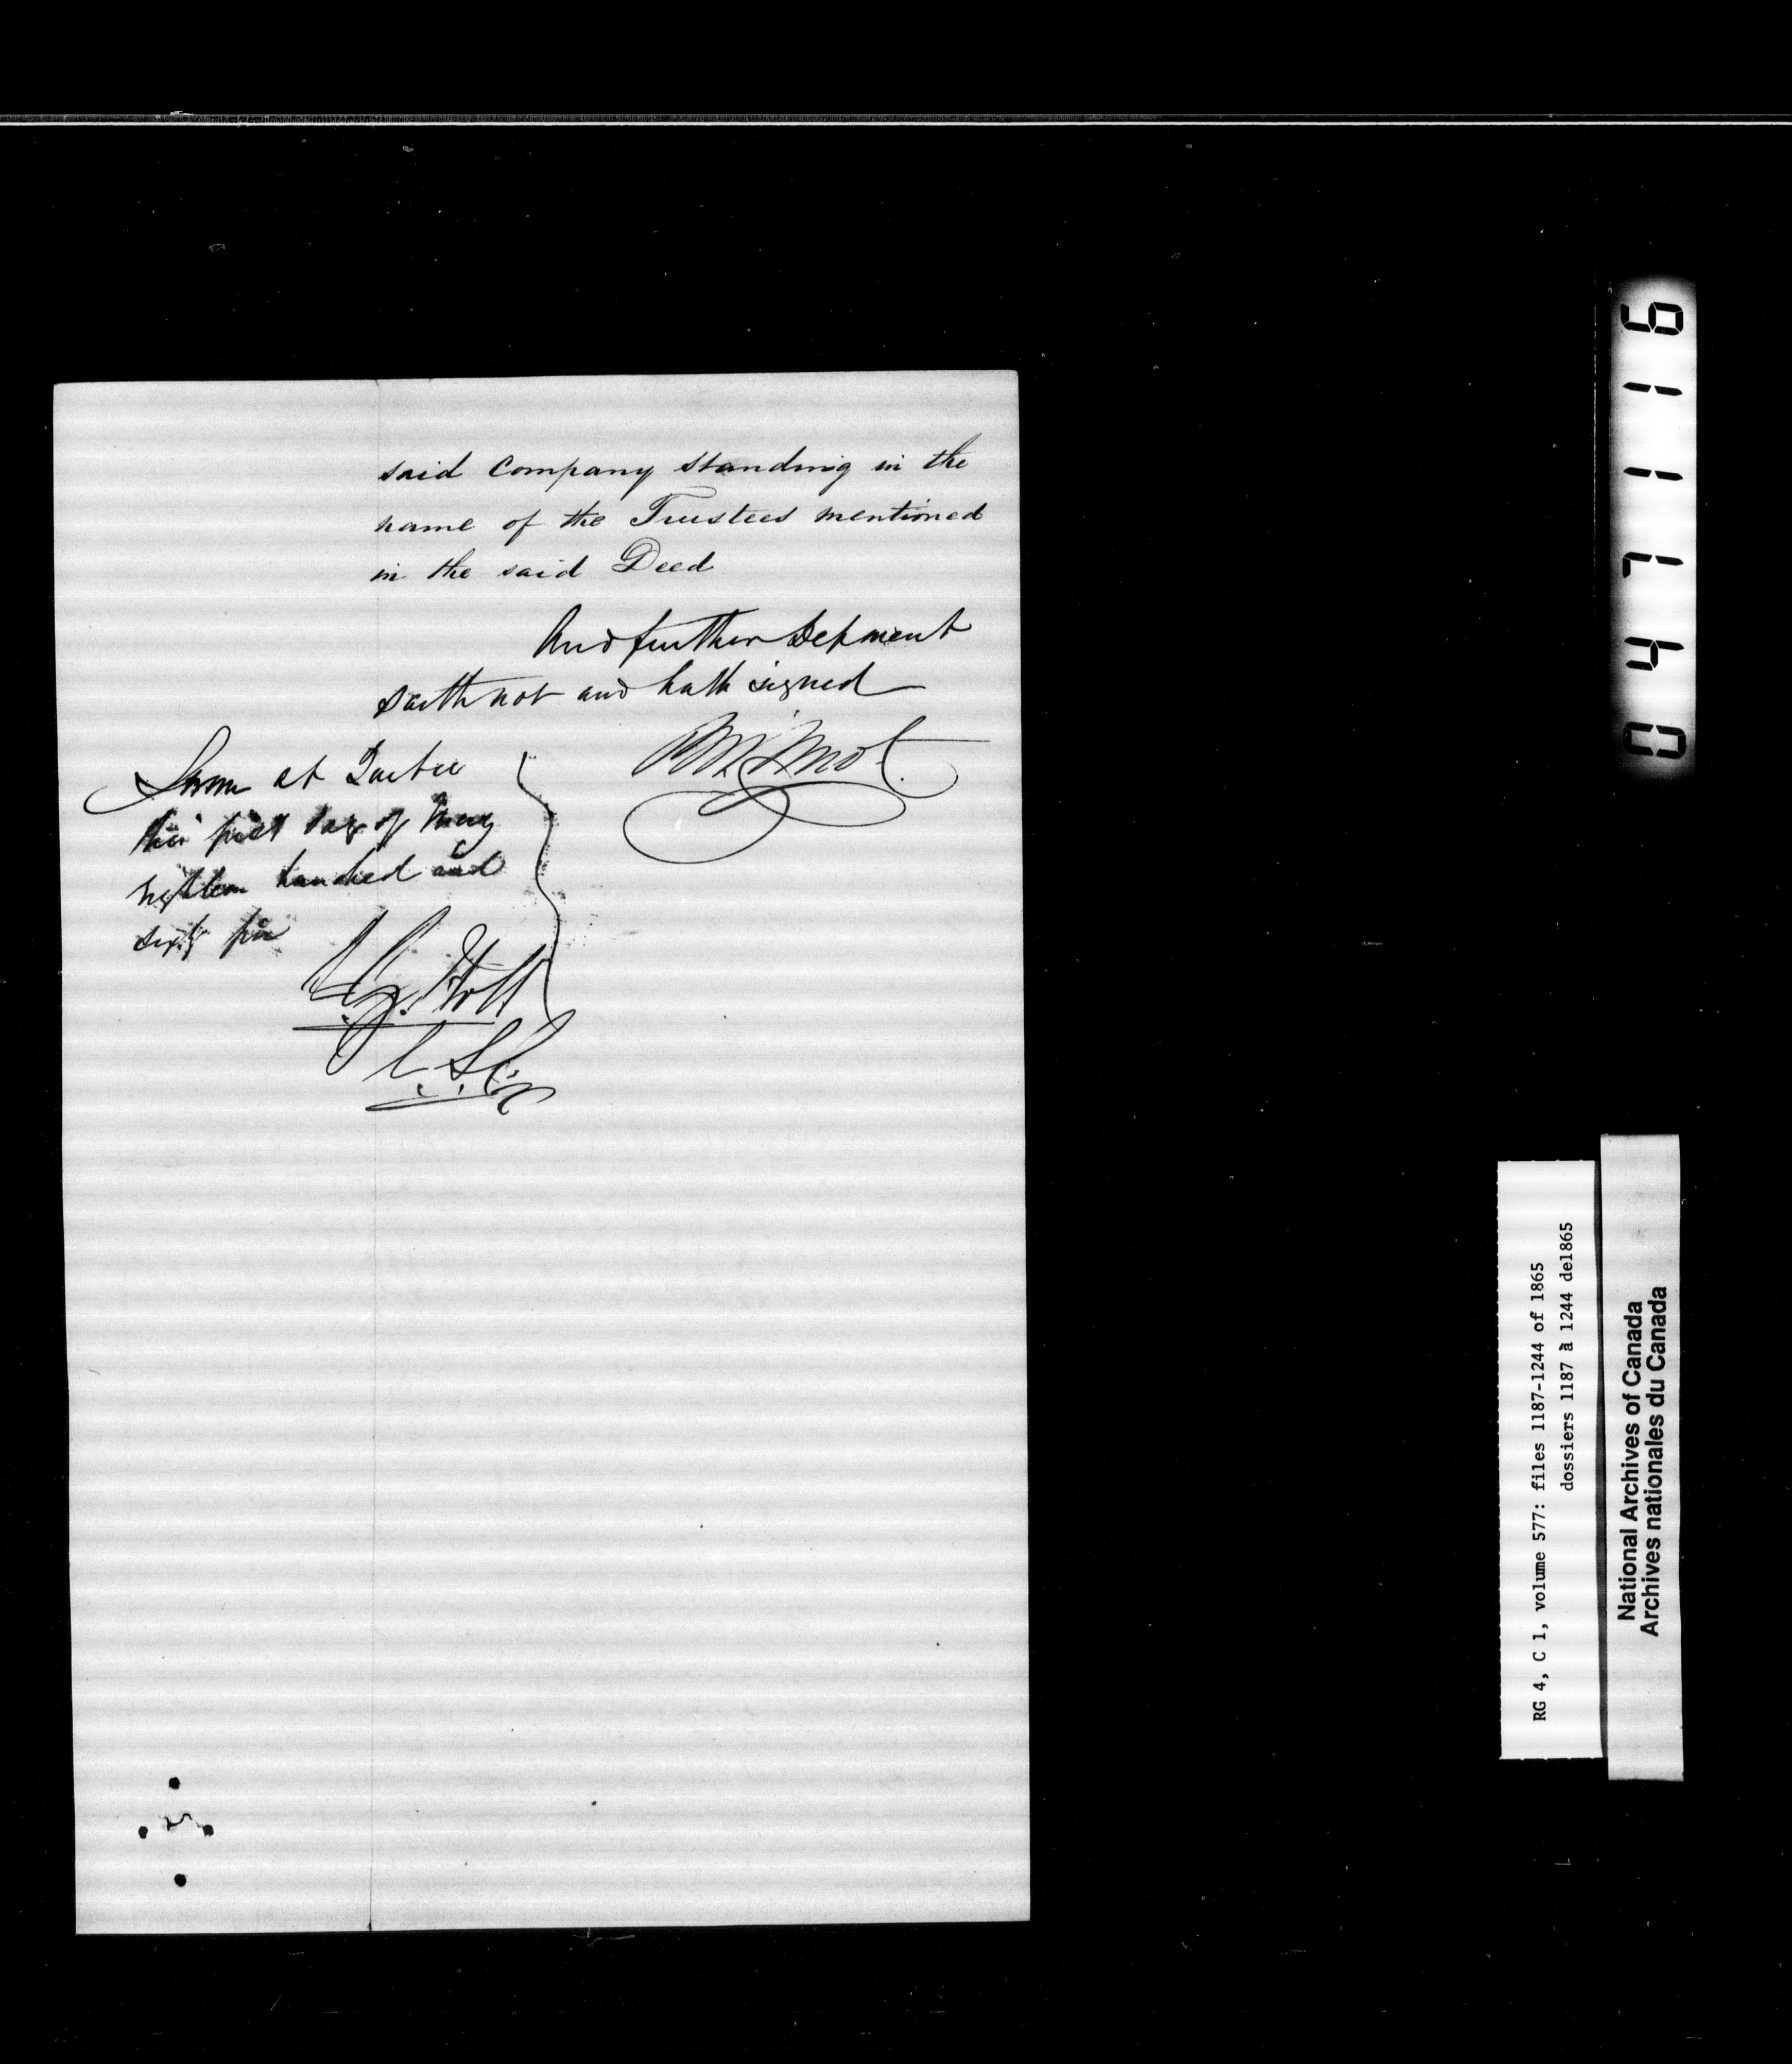 said Company standing in the
name of the Trustees mentioned
in the said Deed
And further Deponent
saith not and hath signed
Sworn at Quebec
this first day of May
eighteen hundred and
sixty five
Holt
J.S.C.
047116
RG 4, C 1, volume 577: files 1187-1244 of 1865
dossiers 1187 à 1244 de1865
National Archives of Canada
Archives nationales du Canada